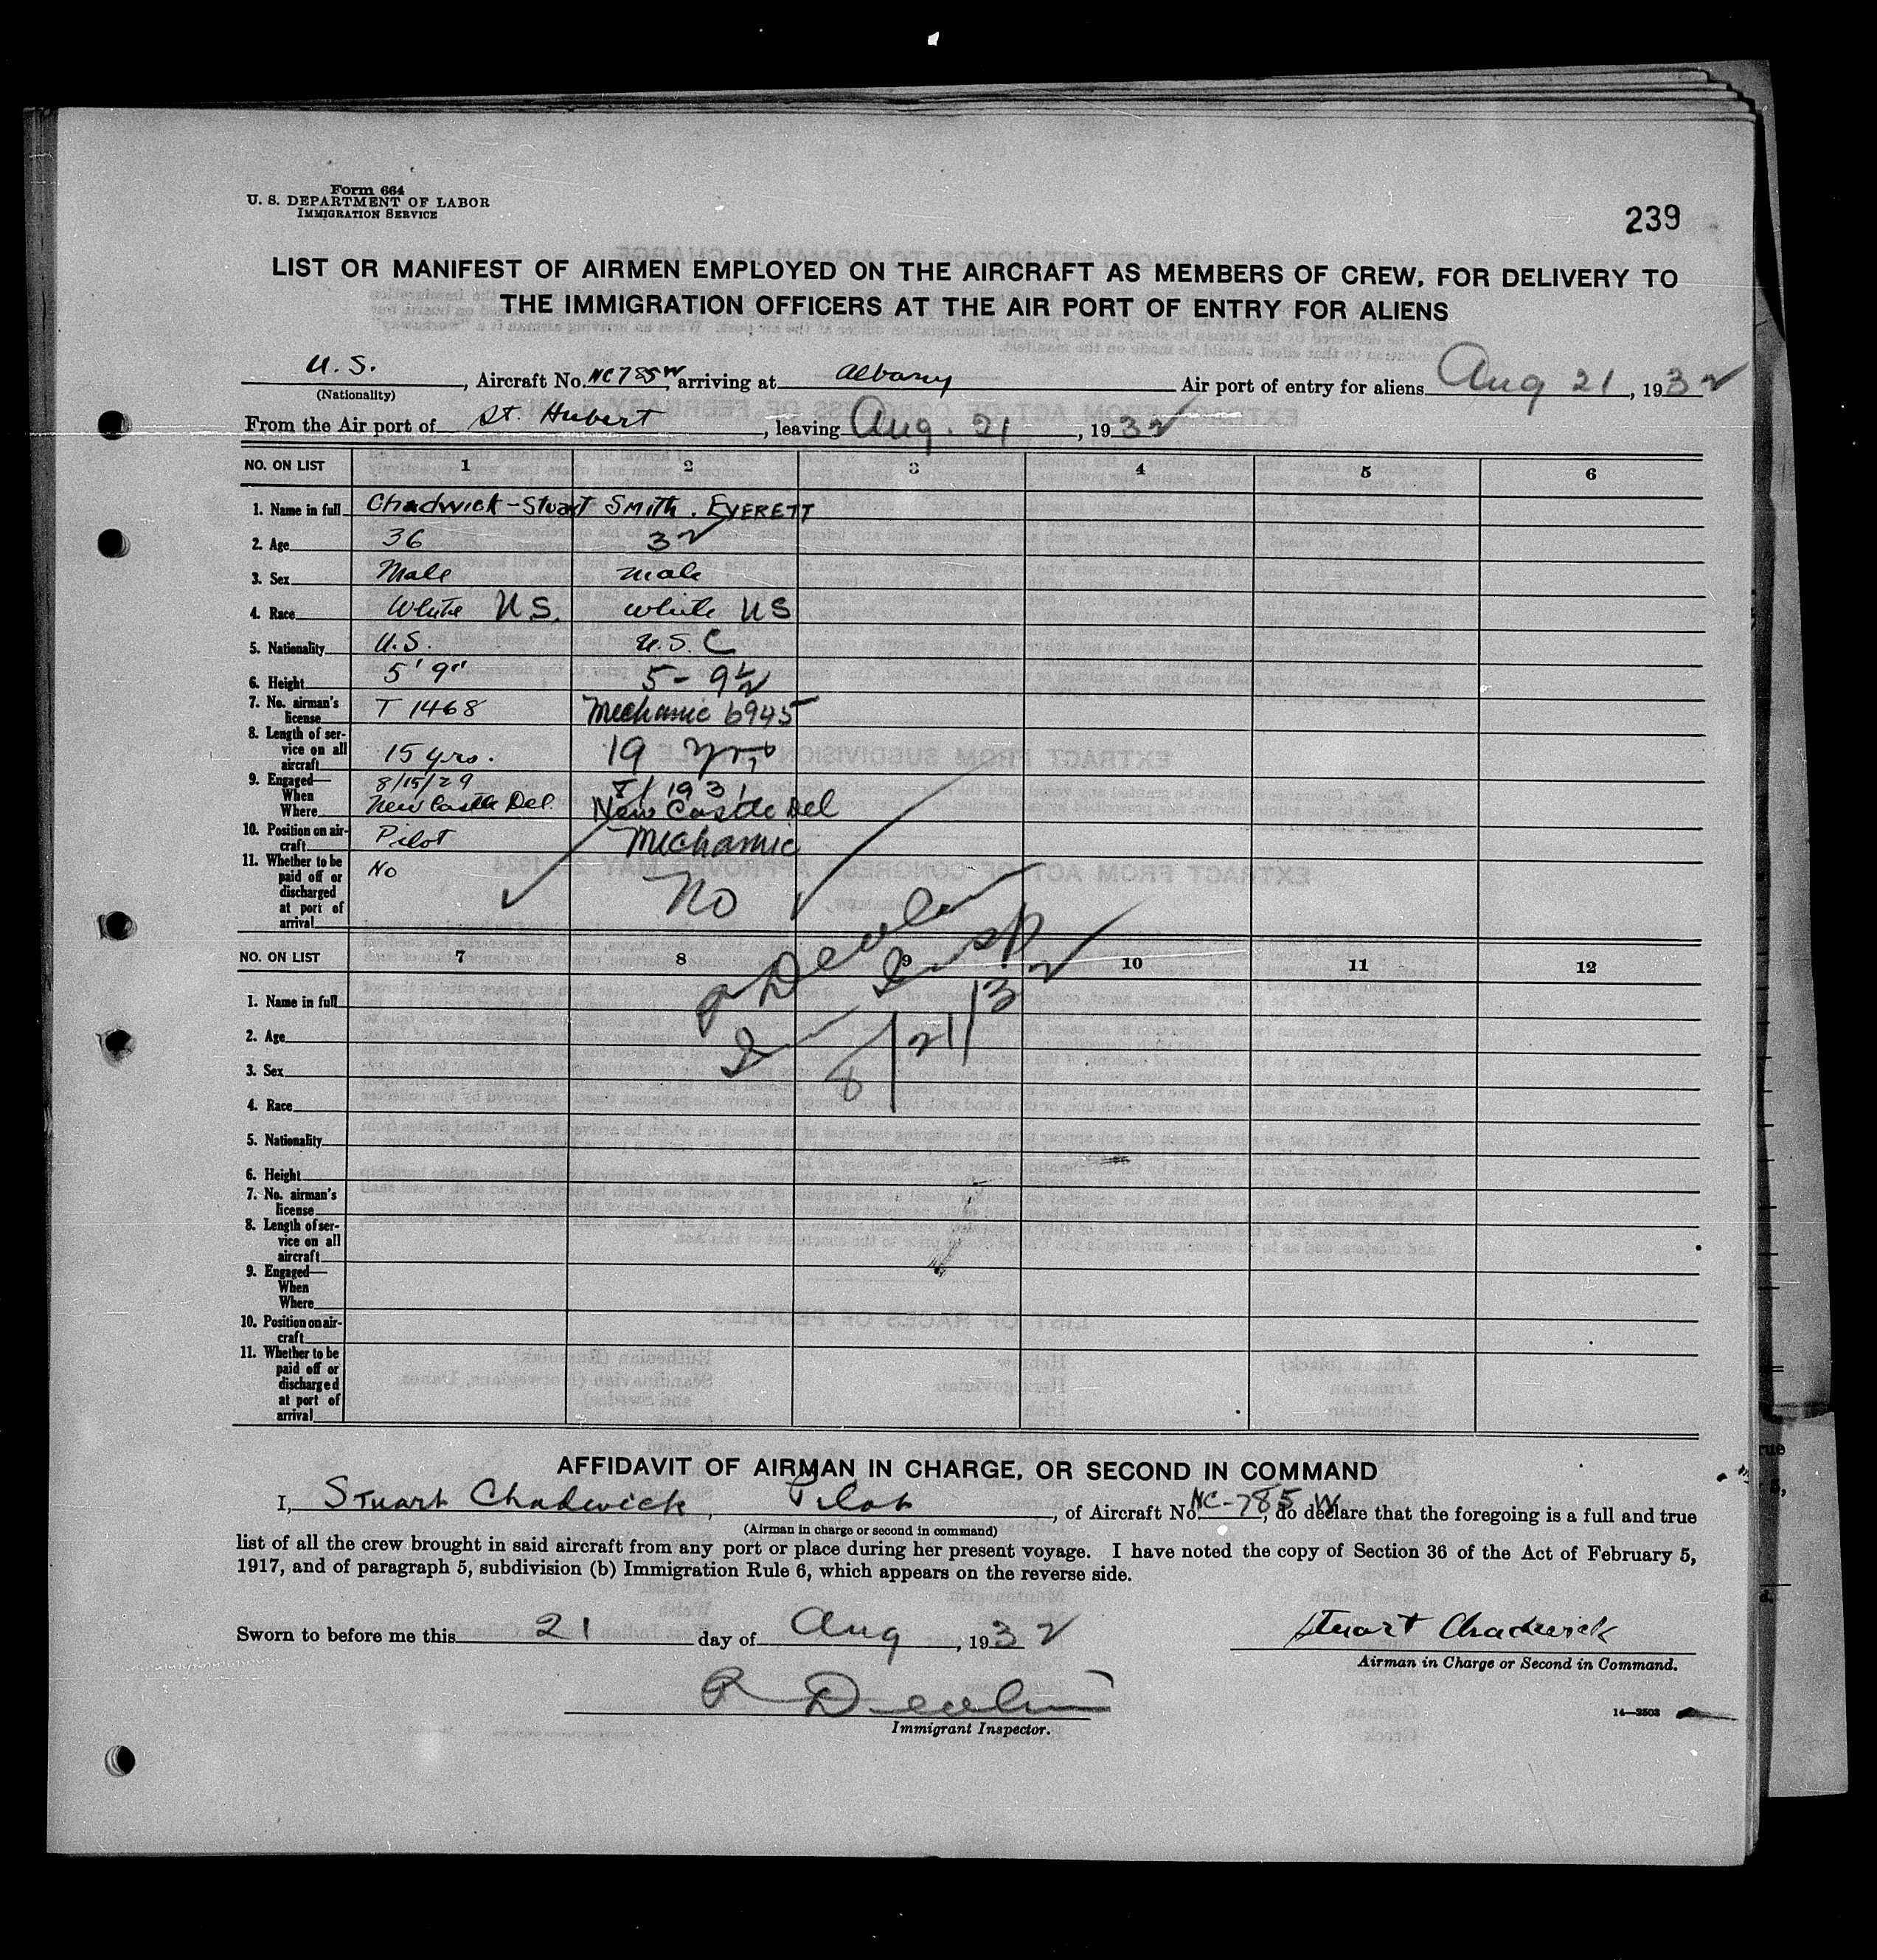 Form 664
U. S. DEPARTMENT OF LABOR
IMMIGRATION SERVICE
239
LIST OR MANIFEST OF AIRMEN EMPLOYED ON THE AIRCRAFT AS MEMBERS OF CREW, FOR DELIVERY TO
THE IMMIGRATION OFFICERS AT THE AIR PORT OF ENTRY FOR ALIENS
U.S., Aircraft No. NC785W, arriving at Albany Air port of entry for aliens Aug 21, 1932
(Nationality)
From the Air port of St. Hubert, leaving Aug. 21, 1932
NO. ON LIST 1 2 3 4 5 6
1. Name in full Chadwick-Stuart Smith. EVERETT
2. Age 36 32
3. Sex Male male
4. Race White U.S. white US
5. Nationality U.S. U.S.C
6. Height 5'9" 5-9½
7. No. airman's
license T 1468 Mechanic 6945
8. Length of ser-
vice on all
aircraft 15 yrs. 19 yrs
9. Engaged— 8/15/29 8/1931
When
Where New Castle Del. New Castle Del
10. Position on air-
craft Pilot Mechanic
11. Whether to be
paid off or
discharged
at port of
arrival No No
P Devlin
Insp
8/21/32
NO. ON LIST 7 8 9 10 11 12
1. Name in full
2. Age
3. Sex
4. Race
5. Nationality
6. Height
7. No. airman's
license
8. Length of ser-
vice on all
aircraft
9. Engaged—
When
Where
10. Position on air-
craft
11. Whether to be
paid off or
discharged
at port of
arrival
AFFIDAVIT OF AIRMAN IN CHARGE, OR SECOND IN COMMAND
I, Stuart Chadwick, Pilot, of Aircraft No. NC-785W, do declare that the foregoing is a full and true
(Airman in charge or second in command)
list of all the crew brought in said aircraft from any port or place during her present voyage. I have noted the copy of Section 36 of the Act of February 5,
1917, and of paragraph 5, subdivision (b) Immigration Rule 6, which appears on the reverse side.
Sworn to before me this 21 day of Aug, 1932
Stuart Chadwick
Airman in Charge or Second in Command.
P Devlin
Immigrant Inspector.
14—3503